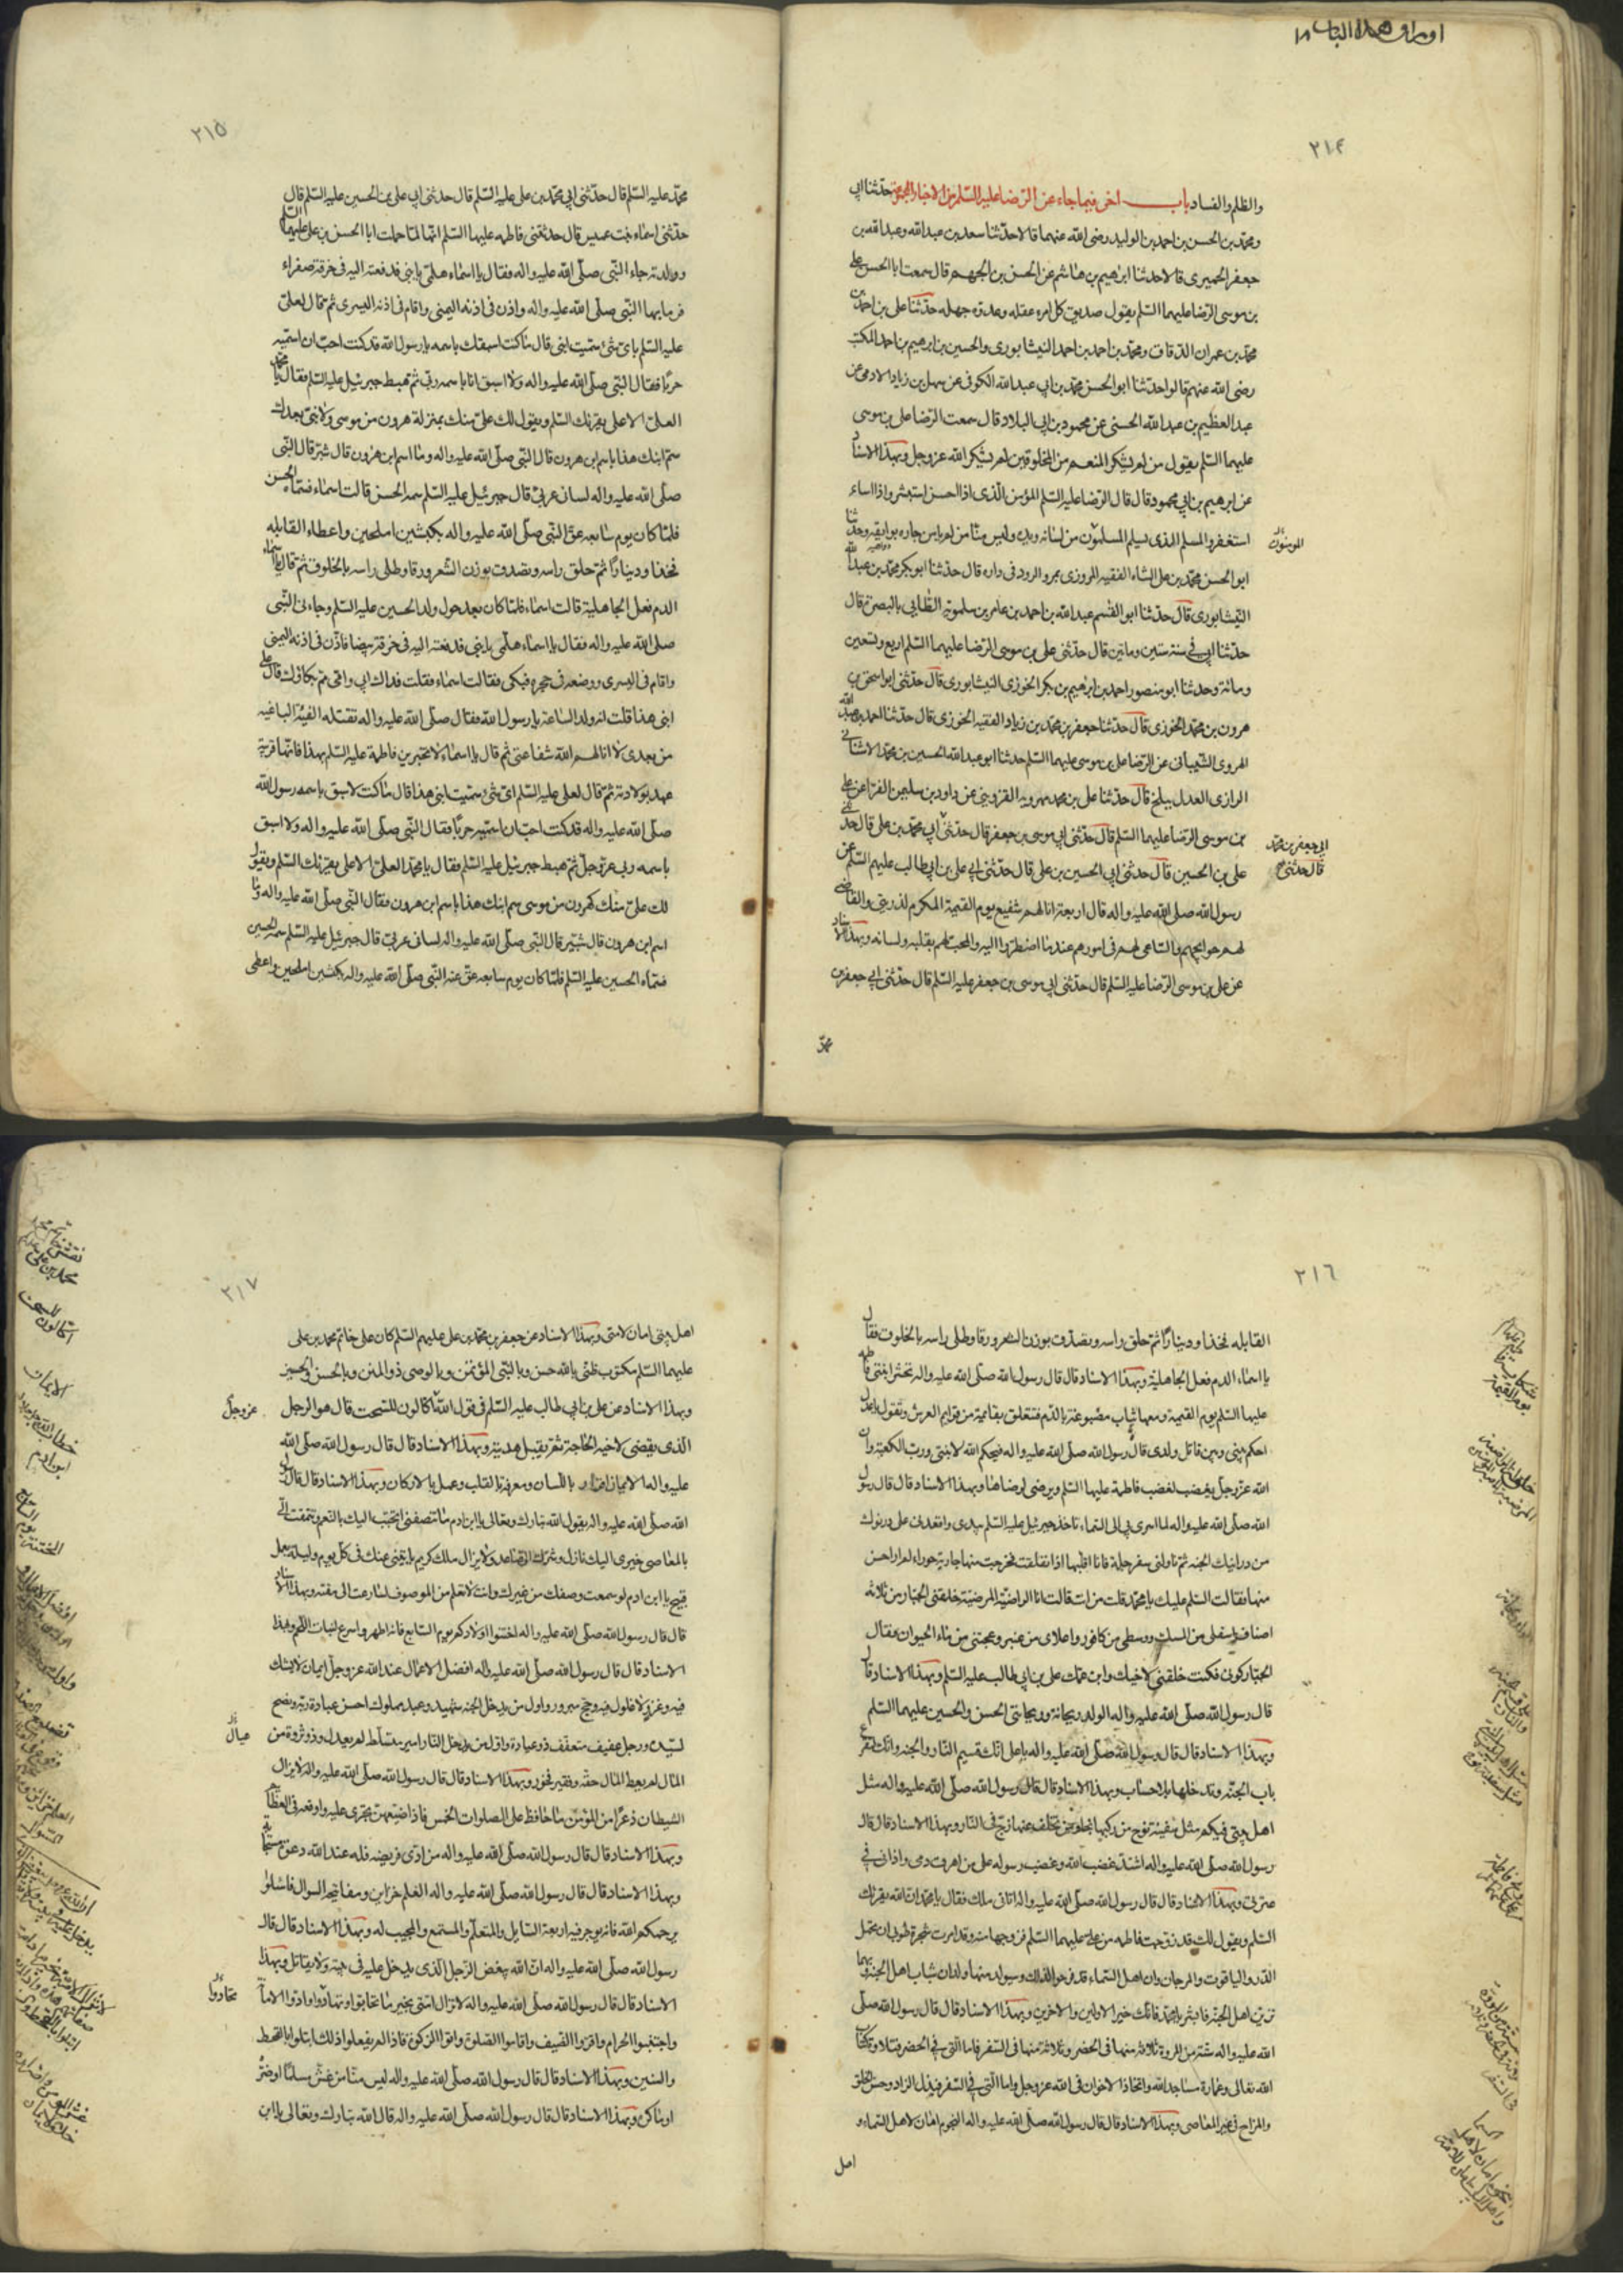 اوراق هذا الباب ١٨
٢١٤
والظلم والفساد باب اخر فيما جاء عن الرضا عليه السلم من الاخبار المجموعة حدثنا ابي
ومحمد بن الحسن بن احمد بن الوليد رضى الله عنهما قالا حدثنا سعد بن عبدالله وعبدالله بن
جعفر الحميرى قالا حدثنا ابرهيم بن هاشم عن الحسن بن الجهم قال سمعت ابا الحسن على
بن موسى الرضا عليهما السلم يقول صديق كل امرء عقله وعدوه جهله حدثنا على بن احمد بن
محمد بن عمران الدقاق ومحمد بن احمد النيشابورى والحسين بن ابرهيم بن احمد المكتب
رضى الله عنهم قالوا حدثنا ابو الحسن محمد بن ابي عبدالله الكوفى عن سهل بن زياد الادمى عن
عبدالعظيم بن عبدالله الحسنى عن محمود بن ابي البلاد قال سمعت الرضا على بن موسى
عليهما السلم يقول من لم يشكر المنعم من المخلوقين لم يشكر الله عز وجل وبهذا الاسناد
عن ابرهيم بن ابي محمود قال قال الرضا عليه السلم المؤمن الذى اذا احسن استبشر واذا اساء
استغفر والمسلم الذى يسلم المسلمون من لسانه ويده وليس منا من لم يامن جاره بوايقه وحدثنا
ابو الحسن محمد بن على الشاه الفقيه المروزى بمرو الرود فى داره قال حدثنا ابوبكر محمد بن عبدالله
النيشابورى قال حدثنا ابو القسم عبدالله بن احمد بن عامر بن سلمويه الطايى بالبصرة قال
حدثنا ابي فى سنة ستين وماتين قال حدثنى على بن موسى الرضا عليهما السلم اربع وتسعين
ومائة وحدثنا ابو منصور احمد بن ابرهيم بن بكر الخوزى النيشابورى قال حدثنى ابو اسحق بن
هرون بن محمد الخوزى قال حدثنا جعفر بن محمد بن زياد الفقيه الخوزى قال حدثنا احمد بن عبدالله
الهروى الشيبانى عن الرضا على بن موسى عليهما السلم حدثنا ابو عبدالله الحسين بن محمد الاشنانى
الرازى العدل ببلخ قال حدثنا على بن محمد مهرويه القزوينى عن داود بن سليمن الفرا عن على
بن موسى الرضا عليهما السلم قال حدثنى ابي موسى بن جعفر قال حدثنى ابي محمد بن على قال حدثنى
على بن الحسين قال حدثنى ابي الحسين بن على قال حدثنى ابي على بن ابي طالب عليهم السلم عن
رسول الله صلى الله عليه واله قال اربعة انا لهم شفيع يوم القيمة المكرم لذريتى والقاضى
لهم حوايجهم والساعى لهم فى امورهم عند ما اضطروا اليه والمحب لهم بقلبه ولسانه وبهذا الاسناد
عن على بن موسى الرضا عليه السلم قال حدثنى ابي موسى بن جعفر عليه السلم قال حدثنى ابي جعفر بن
محمد
المؤمنون
ابي جعفر بن محمد
قال حدثنى
٢١٥
محمد عليه السلم قال حدثنى ابي محمد بن على عليه السلم قال حدثنى ابي على بن الحسين عليه السلم قال
حدثنى اسماء بنت عميس قال حدثتنى فاطمه عليها السلم انها لما حملت ابا الحسن بن على عليهما السلم
وولدته جاء النبى صلى الله عليه واله وفقال يا اسماء هلمى يا بنى فدفعته اليه فى خرقة صفراء
فرما بها النبى صلى الله عليه واله واذن فى اذنه اليمنى واقام فى اذنه اليسرى ثم قال لعلى
عليه السلم باى شئ سميت ابنى قال ما كنت اسبقك باسمه يا رسول الله قد كنت احب ان اسميه
حربا فقال النبى صلى الله عليه واله ولا اسبق انا باسمه ربى ثم هبط جبرئيل عليه السلم فقال يا محمد
العلى الاعلى يقرئك السلم ويقول لك على منك بمنزلة هرون من موسى ولا نبى بعدك
سم ابنك هذا باسم ابن هرون قال النبى صلى الله عليه واله وما اسم ابن هرون قال شبر قال النبى
صلى الله عليه واله لسان عربى قال جبرئيل عليه السلم سمه الحسن قالت اسماء فسماه الحسن
فلما كان يوم سابعه عق النبى صلى الله عليه واله بكبشين املحين واعطاء القابله
فخذا ودينارا ثم حلق راسه وتصدق بوزن الشعر ورقا وطلى راسه بالخلوف ثم قال يا اسماء
الدم فعل الجاهلية قالت اسماء فلما كان بعد حول ولد الحسين عليه السلم وجاءنى النبى
صلى الله عليه واله فقال يا اسماء هلمى يا بنى فدفعته اليه فى خرقة بيضا فاذن فى اذنه اليمنى
واقام فى اليسرى ووضعه فى حجره فبكى فقالت اسماء فقلت فداك ابى وامى مم بكاؤك قال على
ابنى هذا قلت انه ولد الساعة يا رسول الله فقال صلى الله عليه واله تقتله الفئة الباغيه
من بعدى لا انالهم الله شفاعتى ثم قال يا اسماء لا تخبرين فاطمة عليه السلم بهذا فانها قريبة
عهد بولادته ثم قال لعلى عليه السلم اى شئ سميت ابنى هذا قال ما كنت لاسبق باسمه رسول الله
صلى الله عليه واله قد كنت احب ان اسميه حربا فقال النبى صلى الله عليه واله ولا اسبق
باسمه ربى عز وجل ثم هبط جبرئيل عليه السلم فقال يا محمد العلى الاعلى يقرئك السلم ويقول
لك على منك كهرون من موسى سم ابنك هذا باسم ابن هرون فقال النبى صلى الله عليه واله وما
اسم ابن هرون قال شبير قال النبى صلى الله عليه واله لسانى عربى قال جبرئيل عليه السلم سمه الحسين
فسماه الحسين عليه السلم فلما كان يوم سابعه عق عنه النبى صلى الله عليه واله بكبشين املحين واعطى
٢١٦
القابله فخذا ودينارا ثم حلق راسه وتصدق بوزن الشعر ورقا وطلى راسه بالخلوف فقال
يا اسماء الدم فعل الجاهلية وبهذا الاسناد قال قال رسول الله صلى الله عليه واله تحشر ابنتى فاطمه
عليها السلم يوم القيمة ومعها ثياب مصبوغة بالدم فتتعلق بقائمة من قوايم العرش وتقول يا عدل
احكم بينى وبين قاتل ولدى قال رسول الله صلى الله عليه واله فيحكم الله لابنتى ورب الكعبة وان
الله عز وجل يغضب لغضب فاطمة عليها السلم ويرضى لرضاها وبهذا الاسناد قال قال رسول
الله صلى الله عليه واله لما اسرى بى الى السماء تاخذ جبرئيل عليه السلم بيدى واقعدنى على درنوك
من درانيك الجنه ثم ناولنى سفرجلة فانا اقلبها اذا نفلقت فخرجت منها جارية حوراء لم ار احسن
منها فقالت السلم عليك يا محمد قلت من انت قالت انا الراضية المرضية خلقنى الجبار من ثلاثه
اصناف اسفلى من المسك ووسطى من كافور واعلاى من عنبر وعجنتى من ماء الحيوان فقال
الجبار كونى فكنت خلقنى لاخيك وابن عمك على بن ابي طالب عليه السلم وبهذا الاسناد قال
قال رسول الله صلى الله عليه واله الولد ريحانة وريحانتى الحسن والحسين عليهما السلم
وبهذا الاسناد قال قال رسول الله صلى الله عليه واله يا على انك قسيم النار والجنه وانك لتقرع
باب الجنة وتدخلها بلا حساب وبهذا الاسناد قال قال رسول الله صلى الله عليه واله مثل
اهل بيتى فيكم مثل سفينة نوح من ركبها نجا ومن تخلف عنها زج فى النار وبهذا الاسناد قال قال
رسول الله صلى الله عليه واله اشتد غضب الله وغضب رسوله على من اهرق دمى واذانى فى
عترتى وبهذا الاسناد قال قال رسول الله صلى الله عليه واله اتانى ملك فقال يا محمد ان الله يقرئك
السلم ويقول لك قد زوجت فاطمه من على عليهما السلم فزوجها منه وقد امرت شجرة طوبى ان تحمل
الدر والياقوت والمرجان وان اهل السماء قد فرحوا لذلك وسيولد منها ولدان شباب اهل الجنة وبهما
تزين اهل الجنة فابشر يا محمد فانك خير الاولين والاخرين وبهذا الاسناد قال قال رسول الله صلى
الله عليه واله ستة من المروة ثلاثة منها فى الحضر وثلاثة منها فى السفر فاما التى فى الحضر فتلاوة كتاب
الله تعالى وعمارة مساجد الله واتخاذ الاخوان فى الله عز وجل واما التى فى السفر فبذل الزاد وحسن الخلق
والمزاح فى غير المعاصى وبهذا الاسناد قال قال رسول الله صلى الله عليه واله النجوم امان لاهل السماء و
اهل
٢١٧
اهل بيتى امان لامتى وبهذا الاسناد عن جعفر بن محمد بن على عليهم السلم كان على خاتم محمد بن على
عليهما السلم مكتوب ظنى بالله حسن وبالنبى المؤتمن وبالوصى ذو المنن وبالحسين والحسن
وبهذا الاسناد عن على بن ابي طالب عليه السلم فى قول الله اكالون للسحت قال هو الرجل
الذى يقضى لاخيه الحاجة ثم يقبل هديته وبهذا الاسناد قال قال رسول الله صلى الله
عليه واله الايمان اقرار باللسان ومعرفة بالقلب وعمل بالاركان وبهذا الاسناد قال قال رسول
الله صلى الله عليه واله يقول الله تبارك وتعالى يا ابن ادم ما تنصفنى اتحبب اليك بالنعم وتتمقت الى
بالمعاصى خيرى اليك نازل وشرك الى صاعد ولا يزال ملك كريم ياتينى عنك فى كل يوم وليلة بعمل
قبيح يا ابن ادم لو سمعت وصفك من غيرك وانت لا تعلم من الموصوف لسارعت الى مقته وبهذا الاسناد
قال قال رسول الله صلى الله عليه واله اختنوا اولادكم يوم السابع فانه اطهر واسرع لنبات اللحم وبهذا
الاسناد قال قال رسول الله صلى الله عليه واله افضل الاعمال عند الله عز وجل ايمان لا شك
فيه وغزو لا غلول فيه وحج مبرور واول من يدخل الجنه شهيد وعبد مملوك احسن عبادة ربه ونصح
لسيده ورجل عفيف متعفف ذو عبادة واول من يدخل النار امير متسلط لم يعدل وذو ثروة من
المال لم يعط المال حقه وفقير فخور وبهذا الاسناد قال قال رسول الله صلى الله عليه واله لا يزال
الشيطان ذعرا من المؤمن ما حافظ على الصلوات الخمس فاذا ضيعهن تجرى عليه واوقعه فى العظائم
وبهذا الاسناد قال قال رسول الله صلى الله عليه واله من ادى فريضه فله عند الله دعوة مستجابة
وبهذا الاسناد قال قال رسول الله صلى الله عليه واله العلم خزاين ومفاتيحه السوال فاسئلوا
يرحمكم الله فانه يوجر فيه اربعة السايل والمتعلم والمستمع والمجيب له وبهذا الاسناد قال قال
رسول الله صلى الله عليه واله ان الله يبغض الرجل الذى يدخل عليه فى بيته ولا يقاتل وبهذا
الاسناد قال قال رسول الله صلى الله عليه واله لا تزال امتى بخير ما تحابوا وتهادوا وادوا الامانة
واجتنبوا الحرام واقروا الضيف واقاموا الصلوة واتوا الزكوة فاذا لم يفعلوا ذلك ابتلوا بالقحط
والسنين وبهذا الاسناد قال قال رسول الله صلى الله عليه واله ليس منا من غش مسلما او ضره
او ماكره وبهذا الاسناد قال قال رسول الله صلى الله عليه واله قال الله تبارك وتعالى يا ابن
عز وجل
عيال
تحادوا